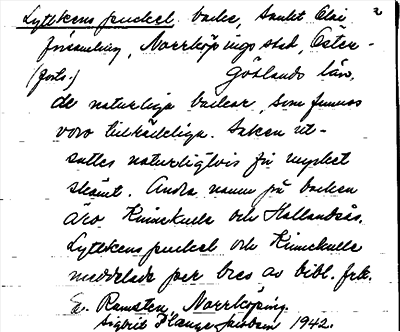 Lyttkens puckel backe, Sankt Olai 2
församling, Norrköpings stad, Öster-
(forts.) götlands län.
de naturliga backar, som funnos
voro tillräckliga. Saken ut-
sattes naturligtvis för mycket
skämt. Andra namn på backen
äro Kinnekulle och Hallandsås.
Lyttkens puckel och Kinnekulle
meddelade per brev av bibl. frk.
E. Ramsten, Norrköping.
Sigbrit Plange Jacobson 1942.